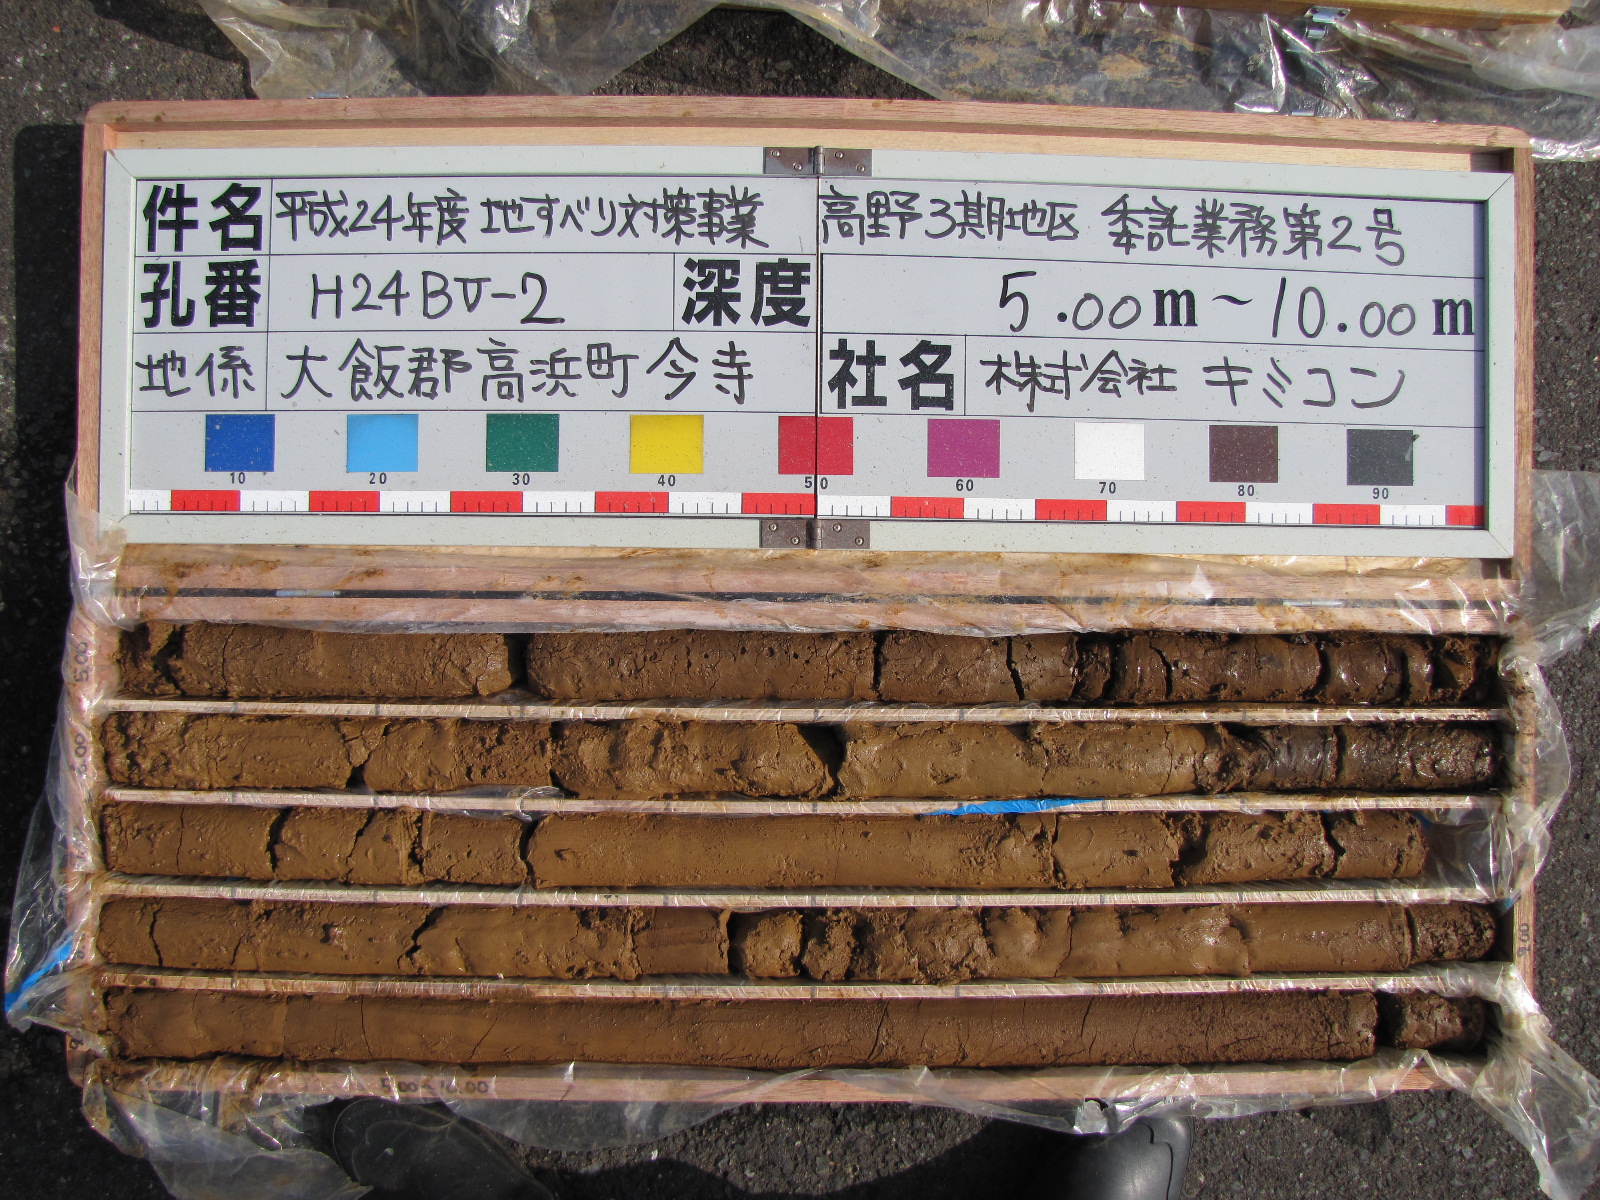 件名 平成24年度 地すべり対策事業 高野3期地区 委託業務第2号
孔番 H24BV-2 深度 5.00m~10.00m
地係 大飯郡高浜町今寺 社名 株式会社 キミコン
10 20 30 40 50 60 70 80 90
5.00
6.00
5.00~10.00